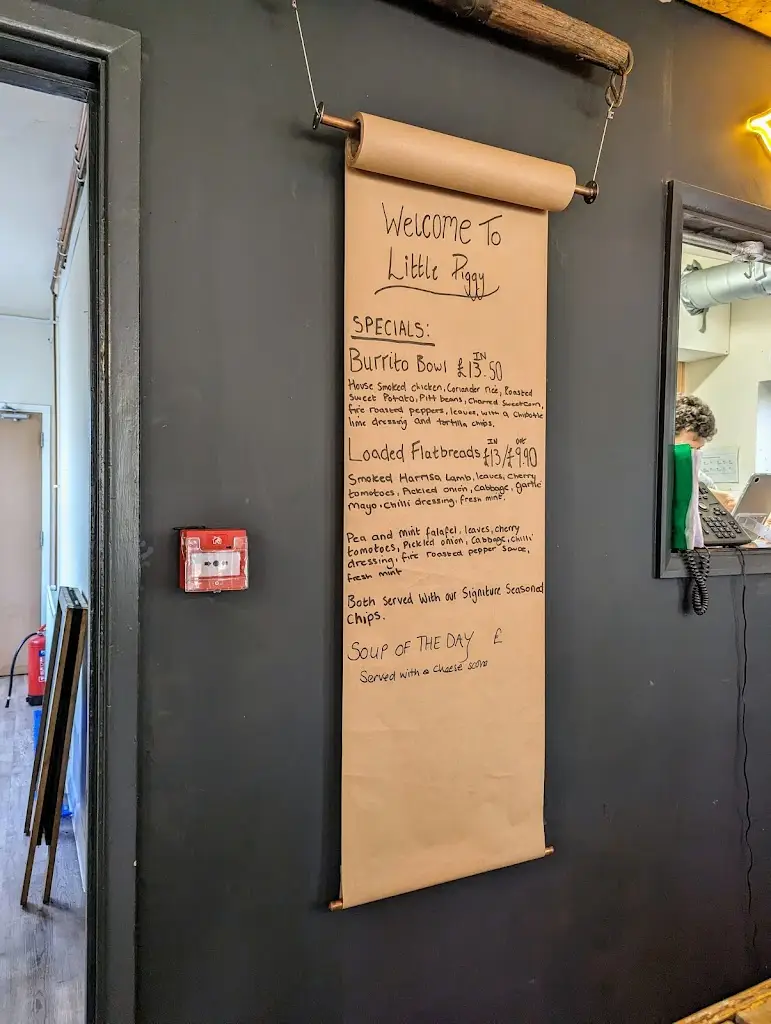 Welcome To
Little Piggy
SPECIALS:
Burrito Bowl £13.50 IN
House Smoked chicken, Coriander rice, Roasted
Sweet Potato, Pitt beans, Charred Sweetcorn,
fire roasted peppers, leaves, with a Chipotle
lime dressing and tortilla chips.
Loaded Flatbreads £13/£9.90 IN OUT
Smoked Harrisa Lamb, leaves, Cherry
tomatoes, Pickled onion, Cabbage, garlic
Mayo, Chilli dressing, fresh mint.
Pea and mint falafel, leaves, cherry
tomatoes, Pickled onion, Cabbage, chilli
dressing, fire roasted pepper sauce,
fresh mint
Both Served With our Signiture Seasoned
Chips.
SOUP OF THE DAY £
Served with a cheese scone